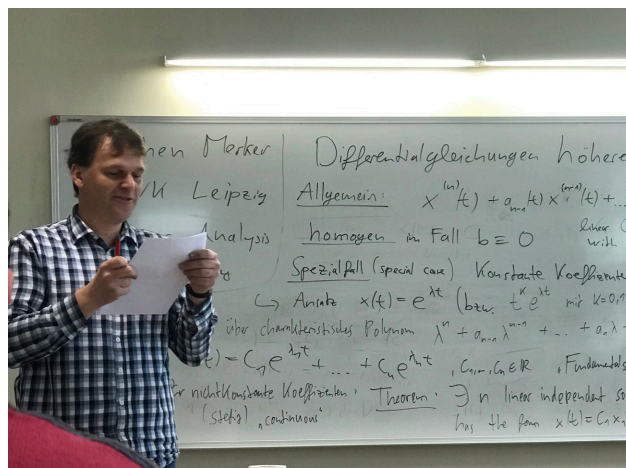 nen Merker
K Leipzig
Analysis
Differentialgleichungen höhere
Allgemein: x⁽ⁿ⁾(t) + aₙ₋₁(t) x⁽ⁿ⁻¹⁾(t) + ...
homogen im Fall b ≡ 0 linear
with
Spezialfall (special case) Konstante Koeffiziente
↳ Ansatz x(t) = e^{λt} (bzw. t^k e^{λt} mit k=0,1
über charakteristisches Polynom λⁿ + aₙ₋₁ λⁿ⁻¹ + ... + a₁ λ
t) = C₁ e^{λ₁t} + ... + Cₙ e^{λₙt} , C₁,...,Cₙ ∈ ℝ , Fundamentals
r nichtkonstante Koeffizienten. Theorem. ∃ n linear independent so
(stetig) „continuous" has the form x(t) = C₁ x₁